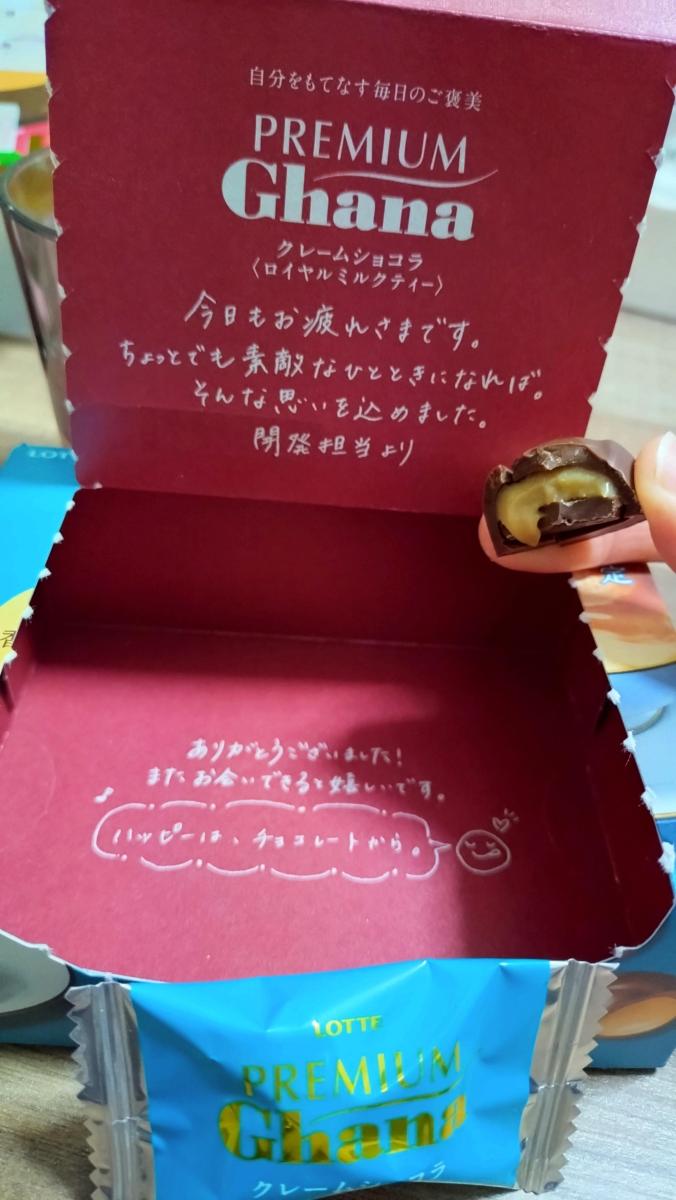 自分をもてなす毎日のご褒美
PREMIUM
Ghana
クレームショコラ
〈ロイヤルミルクティー〉
今日もお疲れさまです。
ちょっとでも素敵なひとときになれば。
そんな思いを込めました。
開発担当より
LOTTE
定
ありがとうございました!
またお会いできると嬉しいです。
ハッピーは、チョコレートから。
LOTTE
PREMIUM
Ghana
クレームショコラ